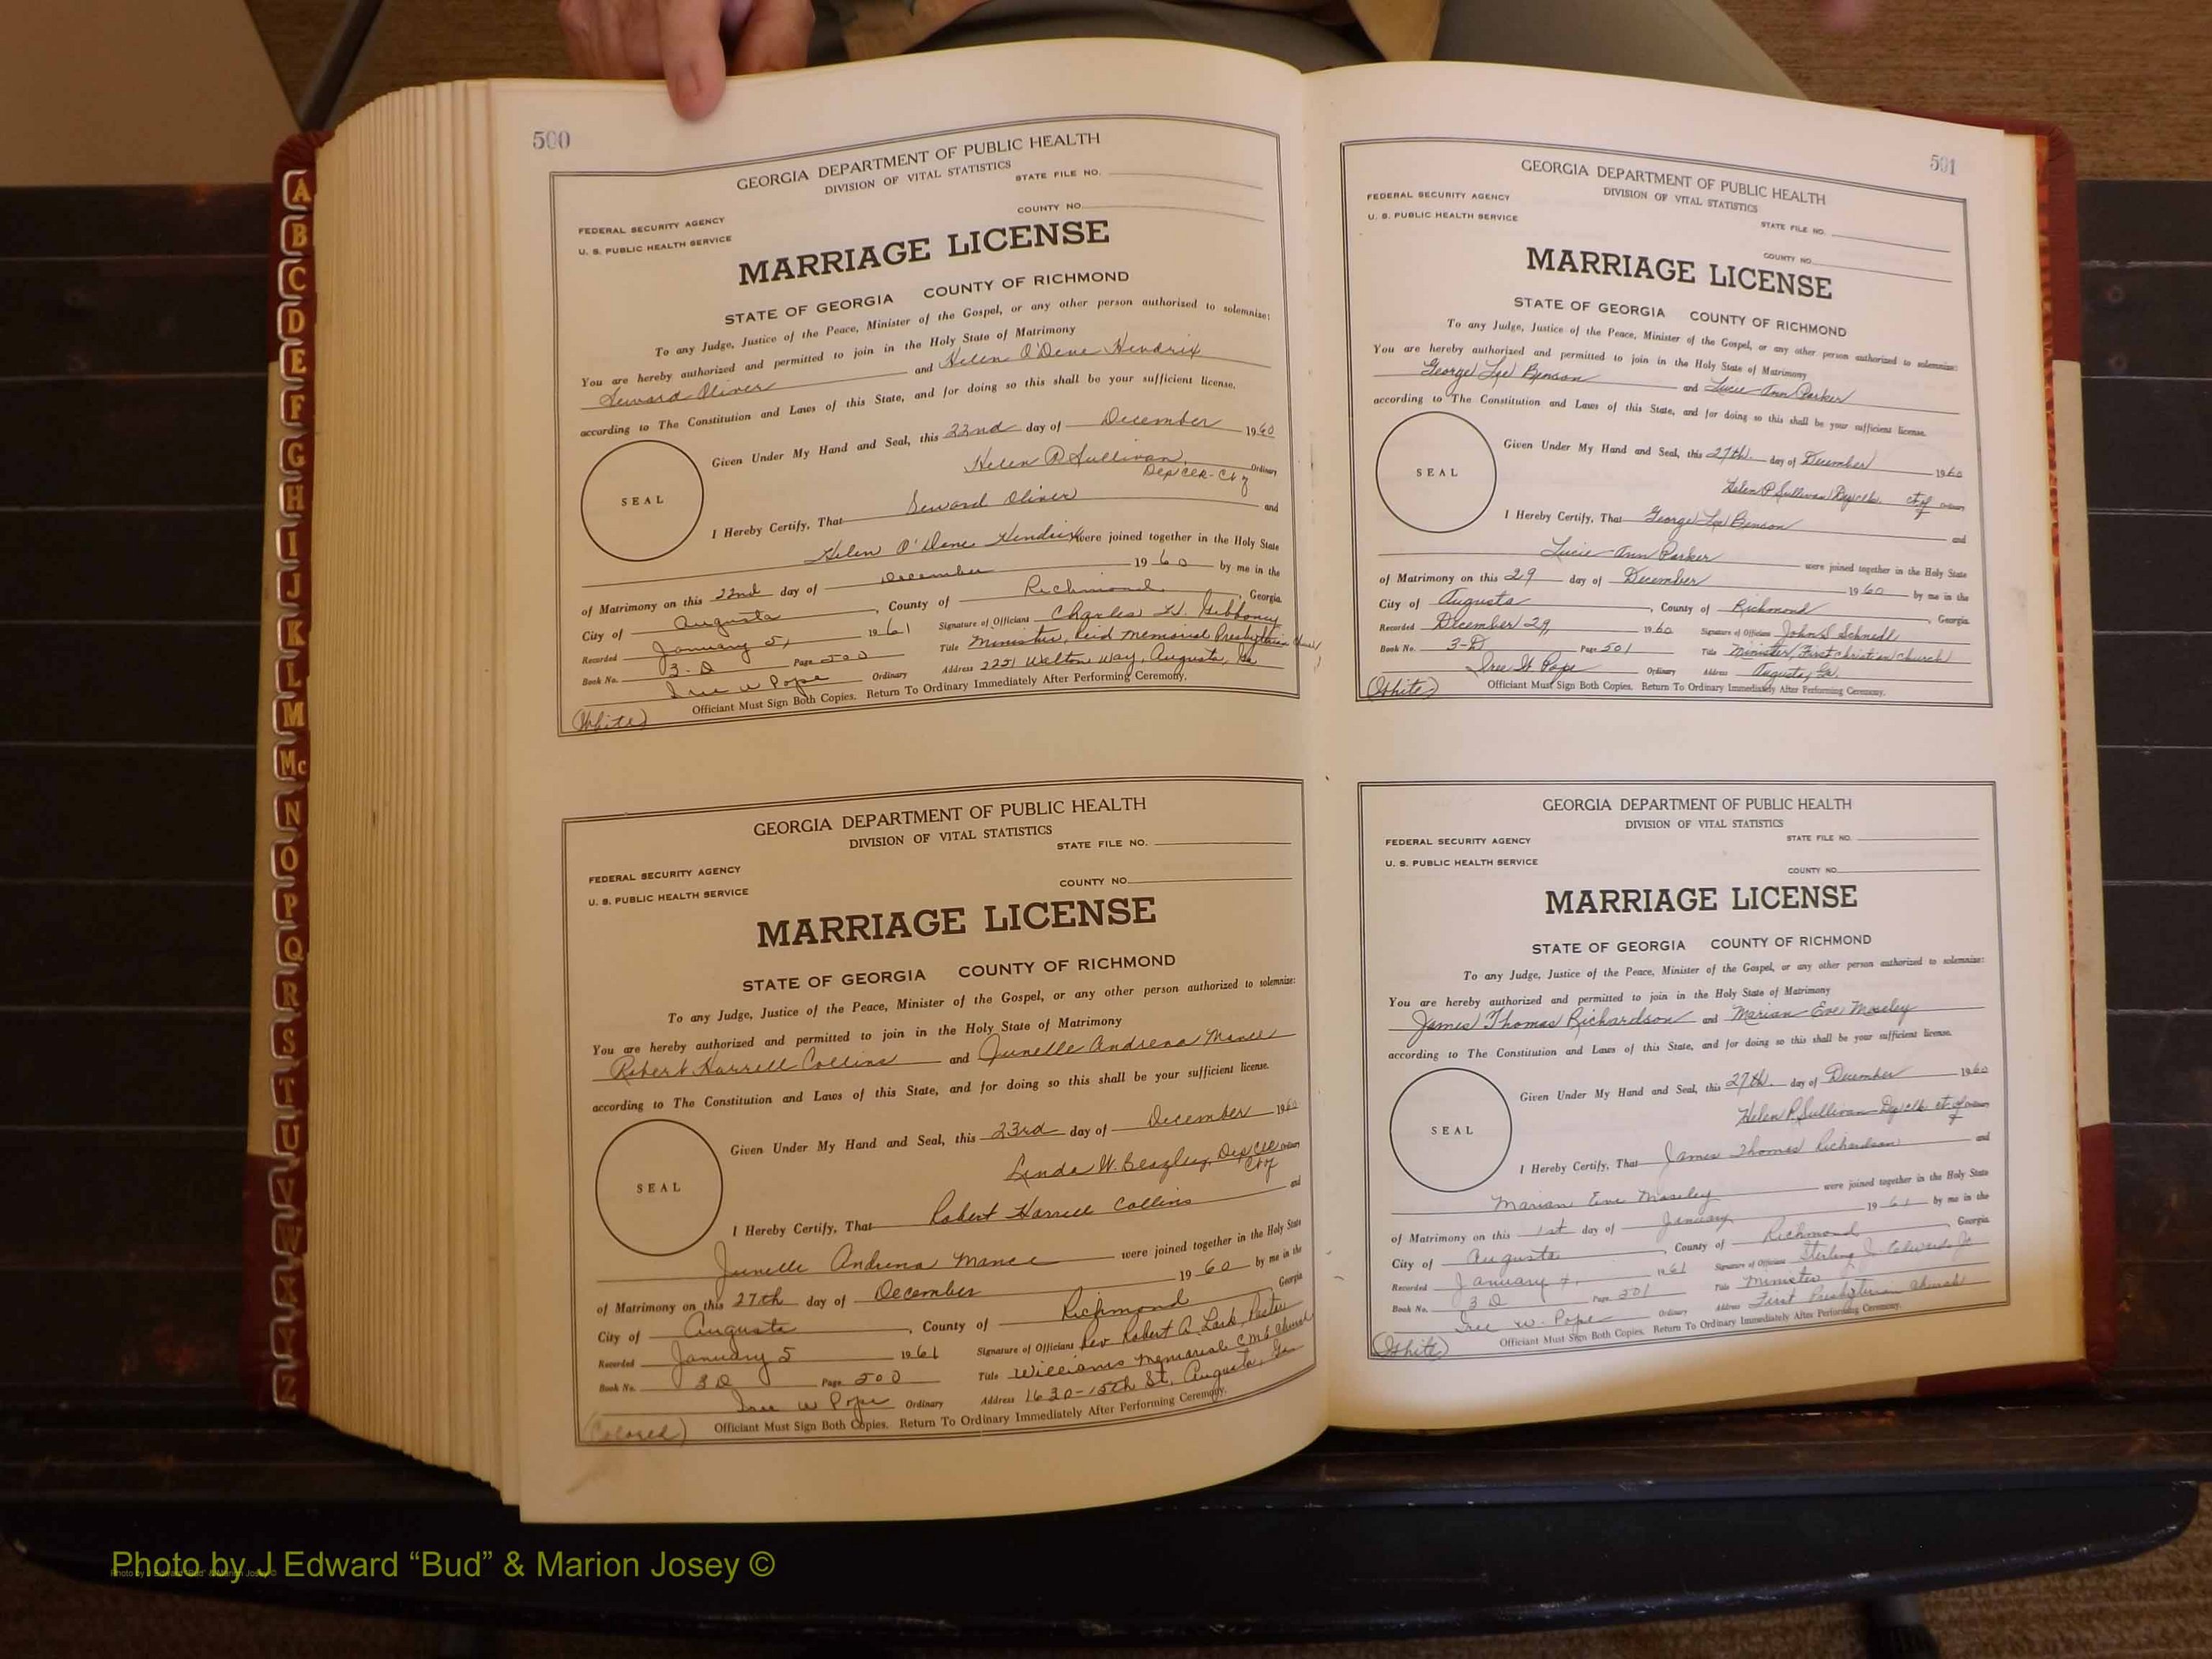 A
B
C
D
E
F
G
H
I
J
K
L
M
Mc
N
O
P
Q
R
S
T
U
V
W
X
Y
Z
500
GEORGIA DEPARTMENT OF PUBLIC HEALTH
DIVISION OF VITAL STATISTICS
STATE FILE NO.
COUNTY NO.
FEDERAL SECURITY AGENCY
U. S. PUBLIC HEALTH SERVICE
MARRIAGE LICENSE
STATE OF GEORGIA COUNTY OF RICHMOND
To any Judge, Justice of the Peace, Minister of the Gospel, or any other person authorized to solemnize:
You are hereby authorized and permitted to join in the Holy State of Matrimony
Seward Oliver and Helen O'Dene Hendrix
according to The Constitution and Laws of this State, and for doing so this shall be your sufficient license.
Given Under My Hand and Seal, this 22nd day of December 1960
Helen P Sullivan, Ordinary
Dep Clk - Ct of
SEAL
I Hereby Certify, That Seward Oliver and
Helen O'Dene Hendrix were joined together in the Holy State
of Matrimony on this 22nd day of December 1960 by me in the
City of Augusta, County of Richmond, Georgia
Recorded January 5, 1961 Signature of Officiant Charles H. Gibboney
Book No. 3-D Page 500 Title Minister, Reid Memorial Presbyterian Church
Iree W Pope Ordinary Address 2251 Walton Way, Augusta, Ga
Officiant Must Sign Both Copies. Return To Ordinary Immediately After Performing Ceremony.
(White)
GEORGIA DEPARTMENT OF PUBLIC HEALTH
DIVISION OF VITAL STATISTICS
STATE FILE NO.
FEDERAL SECURITY AGENCY
COUNTY NO.
U. S. PUBLIC HEALTH SERVICE
MARRIAGE LICENSE
STATE OF GEORGIA COUNTY OF RICHMOND
To any Judge, Justice of the Peace, Minister of the Gospel, or any other person authorized to solemnize:
You are hereby authorized and permitted to join in the Holy State of Matrimony
Robert Harrell Collins and Junelle Andrena Mance
according to The Constitution and Laws of this State, and for doing so this shall be your sufficient license.
Given Under My Hand and Seal, this 23rd day of December 1960
Linda W. Beazley, Dep Clk Ordinary
Ct of
SEAL
I Hereby Certify, That Robert Harrell Collins and
Junelle Andrena Mance were joined together in the Holy State
of Matrimony on this 27th day of December 1960 by me in the
City of Augusta, County of Richmond Georgia
Recorded January 5 1961 Signature of Officiant Rev Robert A. Lark, Pastor
Book No. 3D Page 500 Title Williams Memorial C.M.E. Church
Iree W Pope Ordinary Address 1630-15th St. Augusta, Ga
(Colored) Officiant Must Sign Both Copies. Return To Ordinary Immediately After Performing Ceremony.
501
GEORGIA DEPARTMENT OF PUBLIC HEALTH
DIVISION OF VITAL STATISTICS
FEDERAL SECURITY AGENCY
U. S. PUBLIC HEALTH SERVICE
STATE FILE NO.
COUNTY NO.
MARRIAGE LICENSE
STATE OF GEORGIA COUNTY OF RICHMOND
To any Judge, Justice of the Peace, Minister of the Gospel, or any other person authorized to solemnize:
You are hereby authorized and permitted to join in the Holy State of Matrimony
George Lee Benson and Lucie Ann Parker
according to The Constitution and Laws of this State, and for doing so this shall be your sufficient license.
Given Under My Hand and Seal, this 27th. day of December 1960
Helen P Sullivan Dep clk. ct. of Ordinary
SEAL
I Hereby Certify, That George Lee Benson and
Lucie Ann Parker were joined together in the Holy State
of Matrimony on this 29 day of December 1960 by me in the
City of Augusta, County of Richmond, Georgia
Recorded December 29, 1960 Signature of Officiant John S. Schnell
Book No. 3-D Page 501 Title Minister, First Christian Church
Iree W Pope Ordinary Address Augusta, Ga.
(White) Officiant Must Sign Both Copies. Return To Ordinary Immediately After Performing Ceremony.
GEORGIA DEPARTMENT OF PUBLIC HEALTH
DIVISION OF VITAL STATISTICS
FEDERAL SECURITY AGENCY STATE FILE NO.
U. S. PUBLIC HEALTH SERVICE
COUNTY NO.
MARRIAGE LICENSE
STATE OF GEORGIA COUNTY OF RICHMOND
To any Judge, Justice of the Peace, Minister of the Gospel, or any other person authorized to solemnize:
You are hereby authorized and permitted to join in the Holy State of Matrimony
James Thomas Richardson and Marian Eve Moseley
according to The Constitution and Laws of this State, and for doing so this shall be your sufficient license.
Given Under My Hand and Seal, this 27th. day of December 1960
Helen P. Sullivan Dep clk ct. of Ordinary
SEAL
I Hereby Certify, That James Thomas Richardson and
Marian Eve Moseley were joined together in the Holy State
of Matrimony on this 1st day of January 1961 by me in the
City of Augusta, County of Richmond, Georgia
Recorded January 4, 1961 Signature of Officiant Sterling J. Edwards, Jr.
Book No. 3D Page 501 Title Minister
Iree W. Pope Ordinary Address First Presbyterian Church
(White) Officiant Must Sign Both Copies. Return To Ordinary Immediately After Performing Ceremony.
Photo by J Edward “Bud” & Marion Josey ©
Photo by J Edward “Bud” & Marion Josey ©